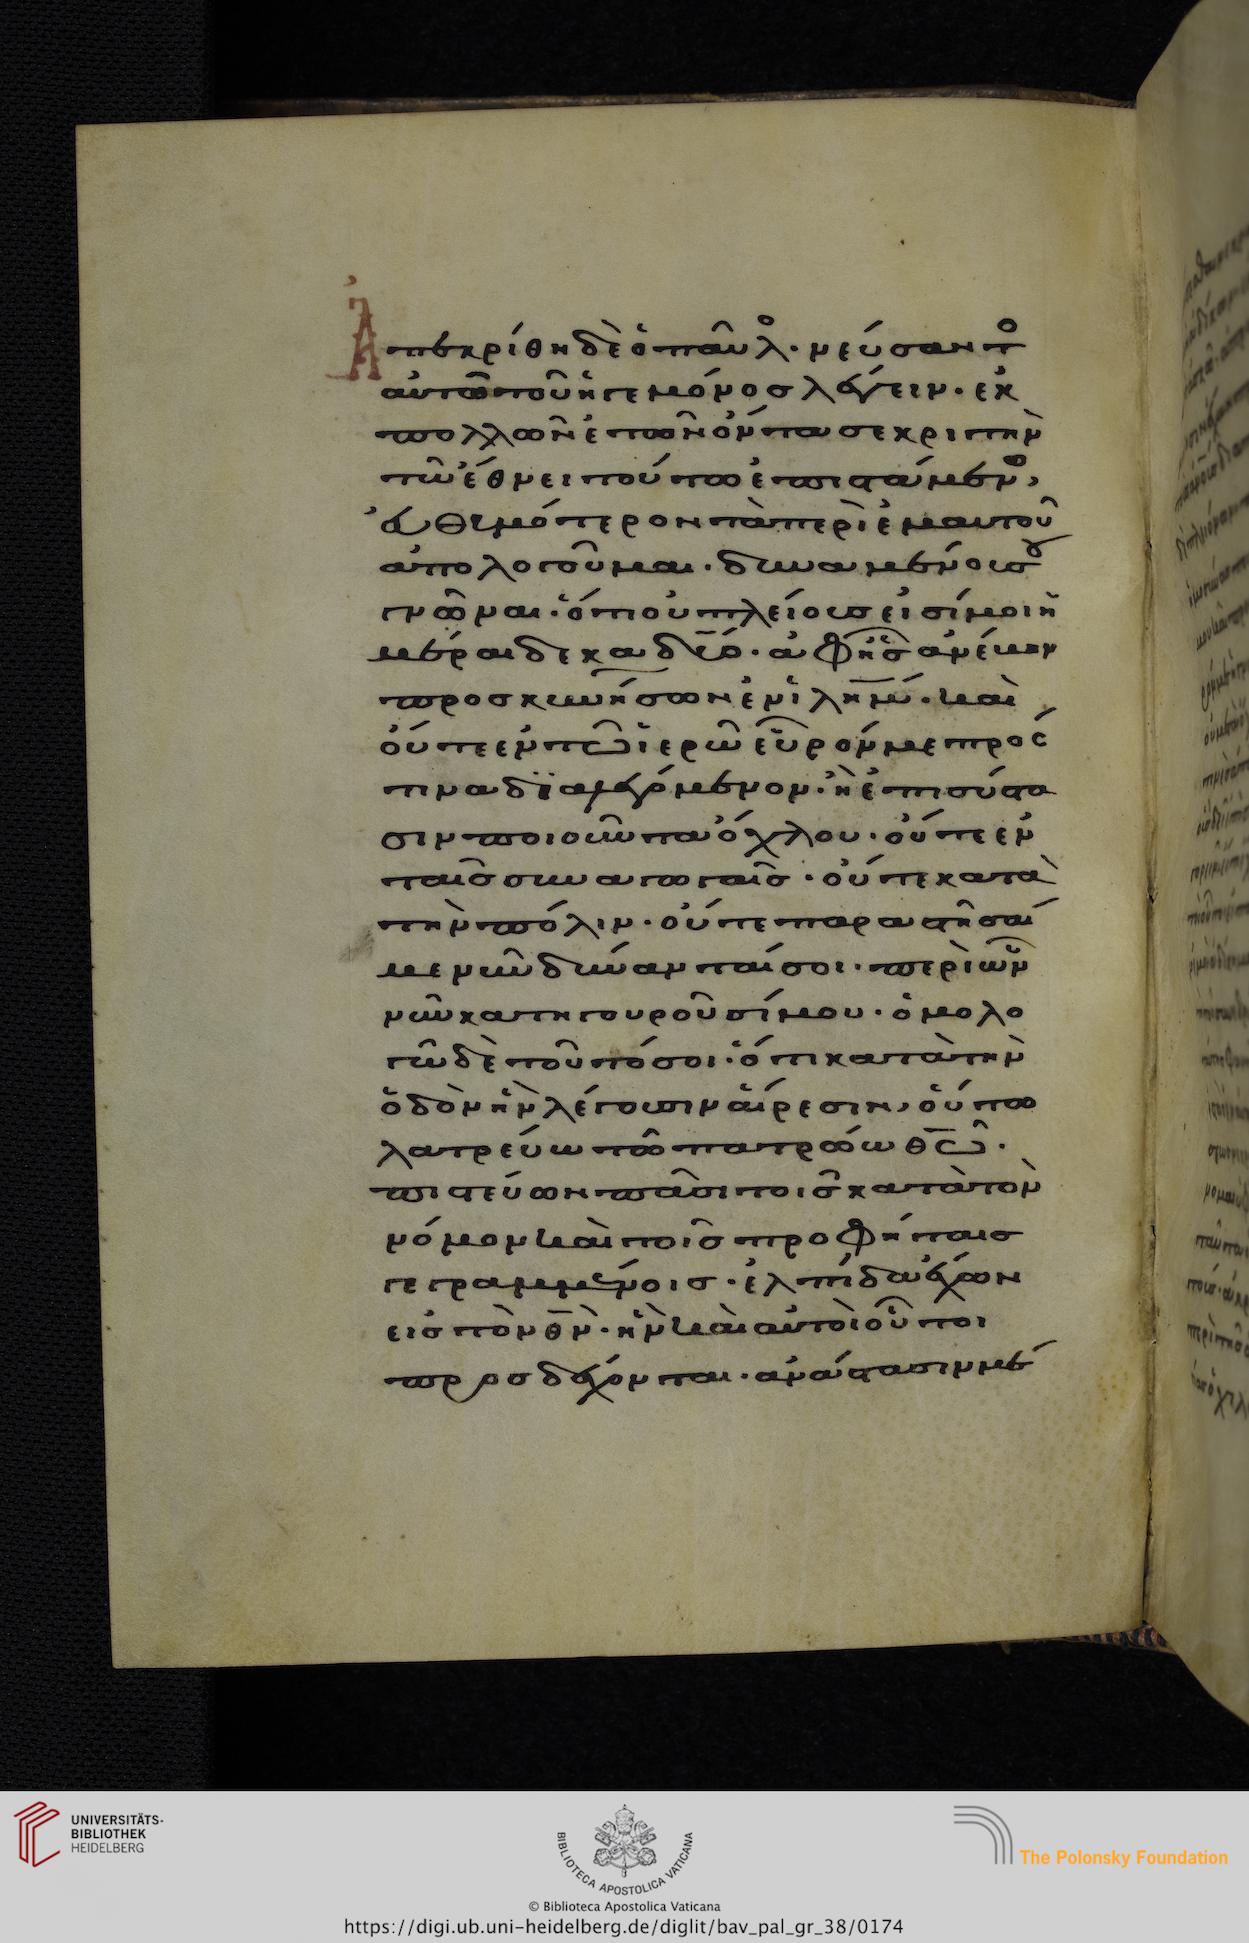 Ἀπεκρίθη δὲ ὁ παῦλο· νεύσαντο
αὐτῶ τοῦ ἡγεμόνος λέγειν· ἐκ
πολλῶν ἐτῶν ὄντα σε κριτὴν
τῶ ἔθνει τούτω ἐπιστάμενο,
εὐθυμότερον τὰ περὶ ἐμαυτοῦ
ἀπολογοῦμαι· δυναμένου σου
γνῶναι· ὅτι οὐ πλείους εἰσί μοι ἡ
μέραι δεκαδύο· ἀφ' ἧς ἀνέβην
προσκυνήσων ἐν ἱλημ· καὶ
οὔτε ἐν τῶ ἱερῶ εὗρόν με πρός
τινα διαλεγόμενον· ἢ ἐπισύστα
σιν ποιοῦντα ὄχλου· οὔτε ἐν
ταῖς συναγωγαῖς· οὔτε κατὰ
τὴν πόλιν· οὔτε παραστῆσαί
με νῦν δύνανταί σοι· περὶ ὧν
νῦν κατηγοροῦσί μου· ὁμολο
γῶ δὲ τοῦτό σοι· ὅτι κατὰ τὴν
ὁδὸν ἣν λέγουσιν αἵρεσιν, οὕτω
λατρεύω τῶ πατρώω θῶ·
πιστεύων πᾶσι τοῖς κατὰ τὸν
νόμον καὶ τοῖς προφήταις
γεγραμμένοις· ἐλπίδα ἔχων
εἰς τὸν θν· ἣν καὶ αὐτοὶ οὗτοι
προσδέχονται· ἀνάστασιν μέ
UNIVERSITÄTS-
BIBLIOTHEK
HEIDELBERG
BIBLIOTECA APOSTOLICA VATICANA
The Polonsky Foundation
© Biblioteca Apostolica Vaticana
https://digi.ub.uni-heidelberg.de/diglit/bav_pal_gr_38/0174